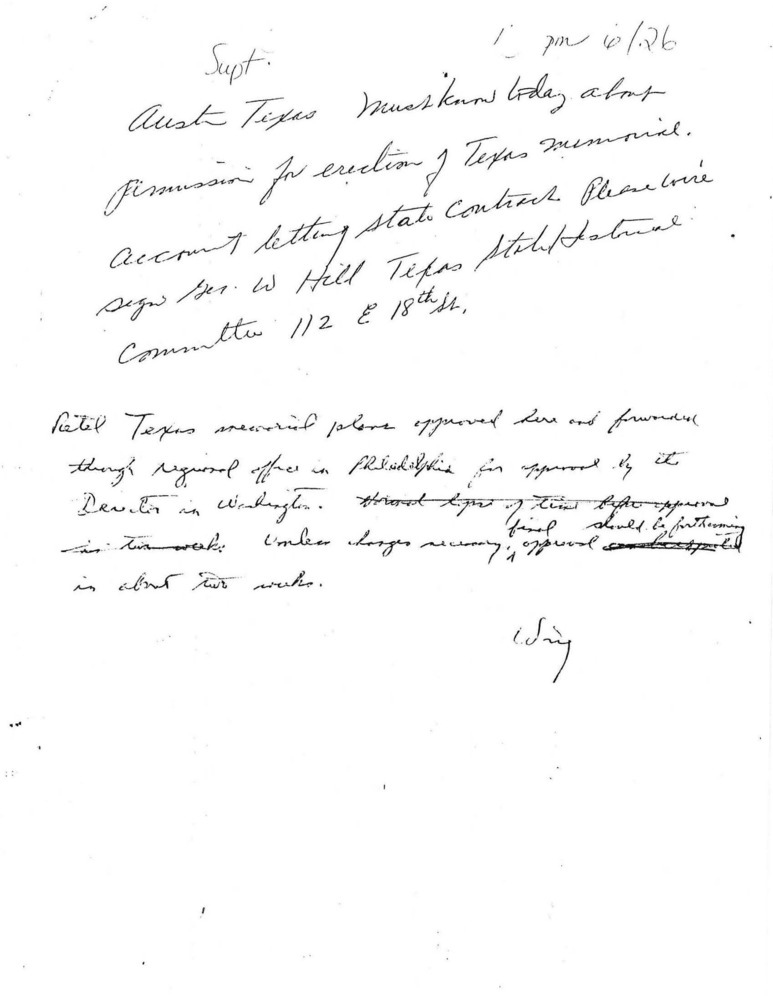 1 pm 6/26
Supt.
Austin Texas Must know today about
permission for erection of Texas memorial.
account letting state contract Please wire
sign Geo. W Hill Texas State Historical
Committee 112 E 18th St.
Texas memorial plans approved here and forwarded
through regional office in Philadelphia for approval by the
Director in Washington. Normal lapse of time before approval
is two weeks. Unless changes necessary, final approval should be forthcoming
in about two weeks.